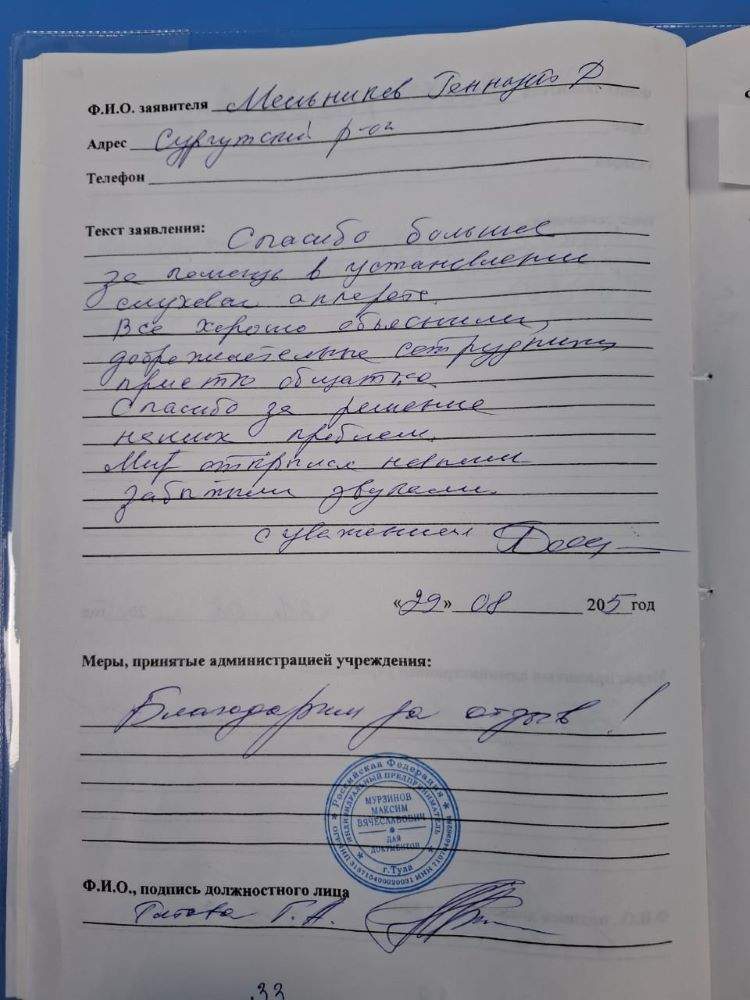 Ф.И.О. заявителя Мельников Геннадий Д.
Адрес Сургутский р-он
Телефон
Текст заявления: Спасибо большое
за помощь в установлении
слухового аппарата.
Все хорошо объяснили,
доброжелательные сотрудники,
приятно общаться
Спасибо за решение
наших проблем.
Мир открылся новыми
забытыми звуками.
с уважением
«29» 08 205 год
Меры, принятые администрацией учреждения:
Благодарим за отзыв!
Российская Федерация
ИНДИВИДУАЛЬНЫЙ ПРЕДПРИНИМАТЕЛЬ
МУРЗИНОВ
МАКСИМ
ВЯЧЕСЛАВОВИЧ
ДЛЯ
ДОКУМЕНТОВ
г.Тула
Ф.И.О., подпись должностного лица
Г.А.
33